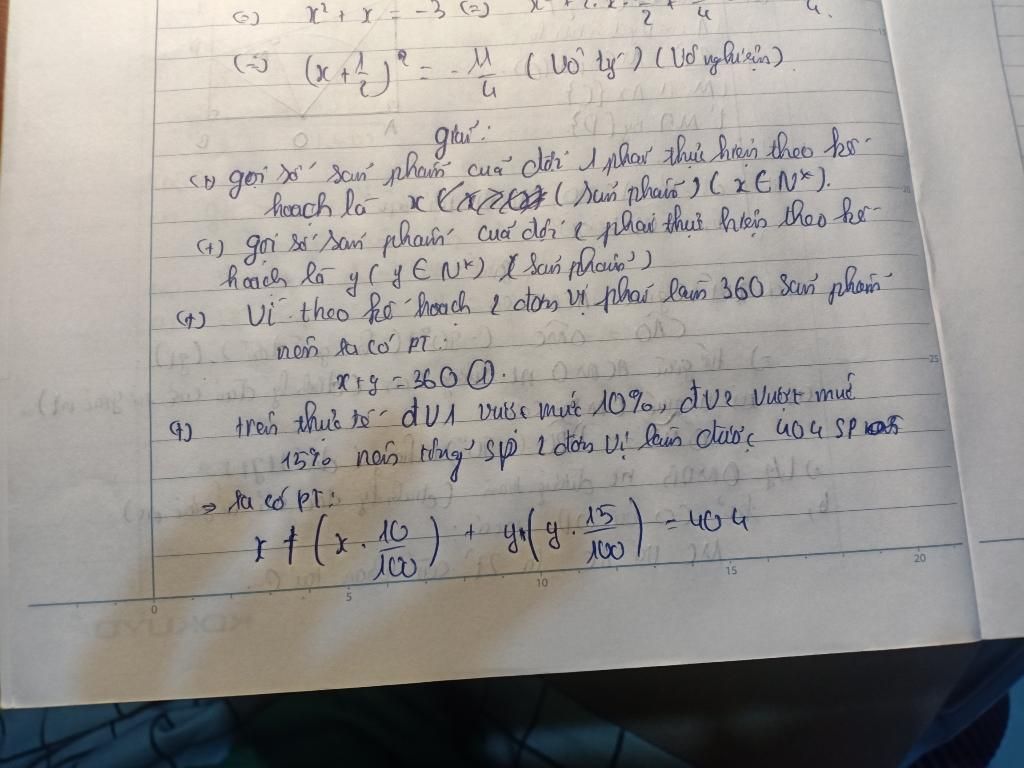 (=) x² + x = -3 (=)
(=) (x + 1/2)² = - 11/4 (Vô lý) (Vô nghiệm)
giải:
(+) gọi số sản phẩm của đội 1 phải thực hiện theo kế
hoạch là x (sản phẩm) (x ∈ N*).
(+) gọi số sản phẩm của đội 2 phải thực hiện theo kế
hoạch là y (y ∈ N*) (sản phẩm)
(+) Vì theo kế hoạch 2 đơn vị phải làm 360 sản phẩm
nên ta có PT:
x + y = 360 ①.
(+) trên thực tế đV1 vượt mức 10%, đV2 vượt mức
15% nên tổng SP 2 đơn vị làm được 404 SP
⇒ ta có PT:
x + (x . 10/100) + y + (y . 15/100) = 404
0 5 10 15 20
25